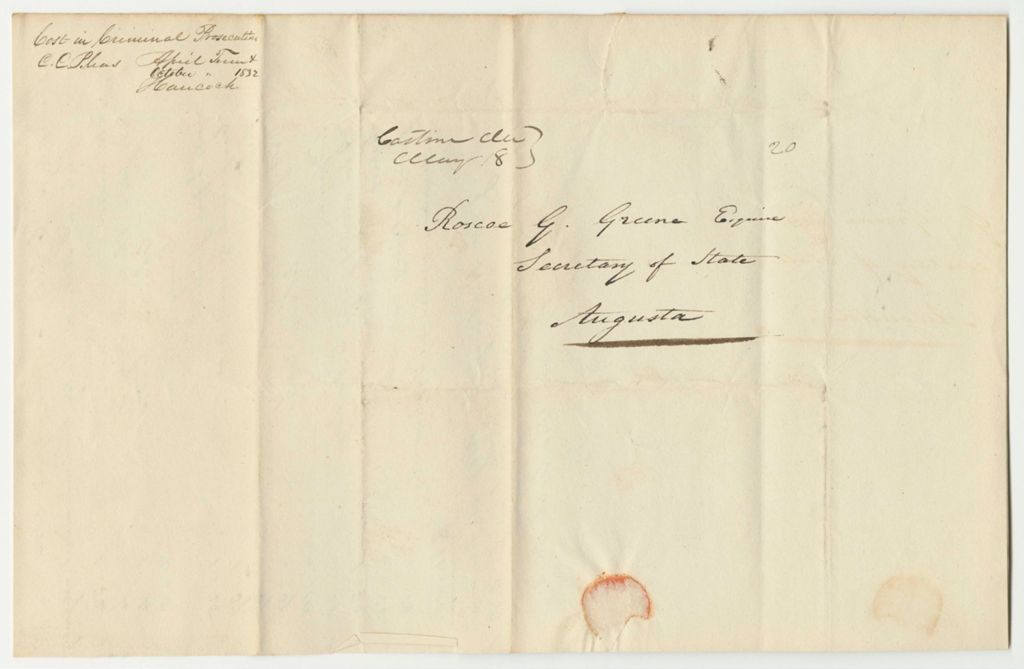 Cost in Criminal Prosecutions
C. C. Pleas April Term &
October " 1832
Hancock
Castine Me }
May 18
20
Roscoe G. Greene Esquire
Secretary of State
Augusta